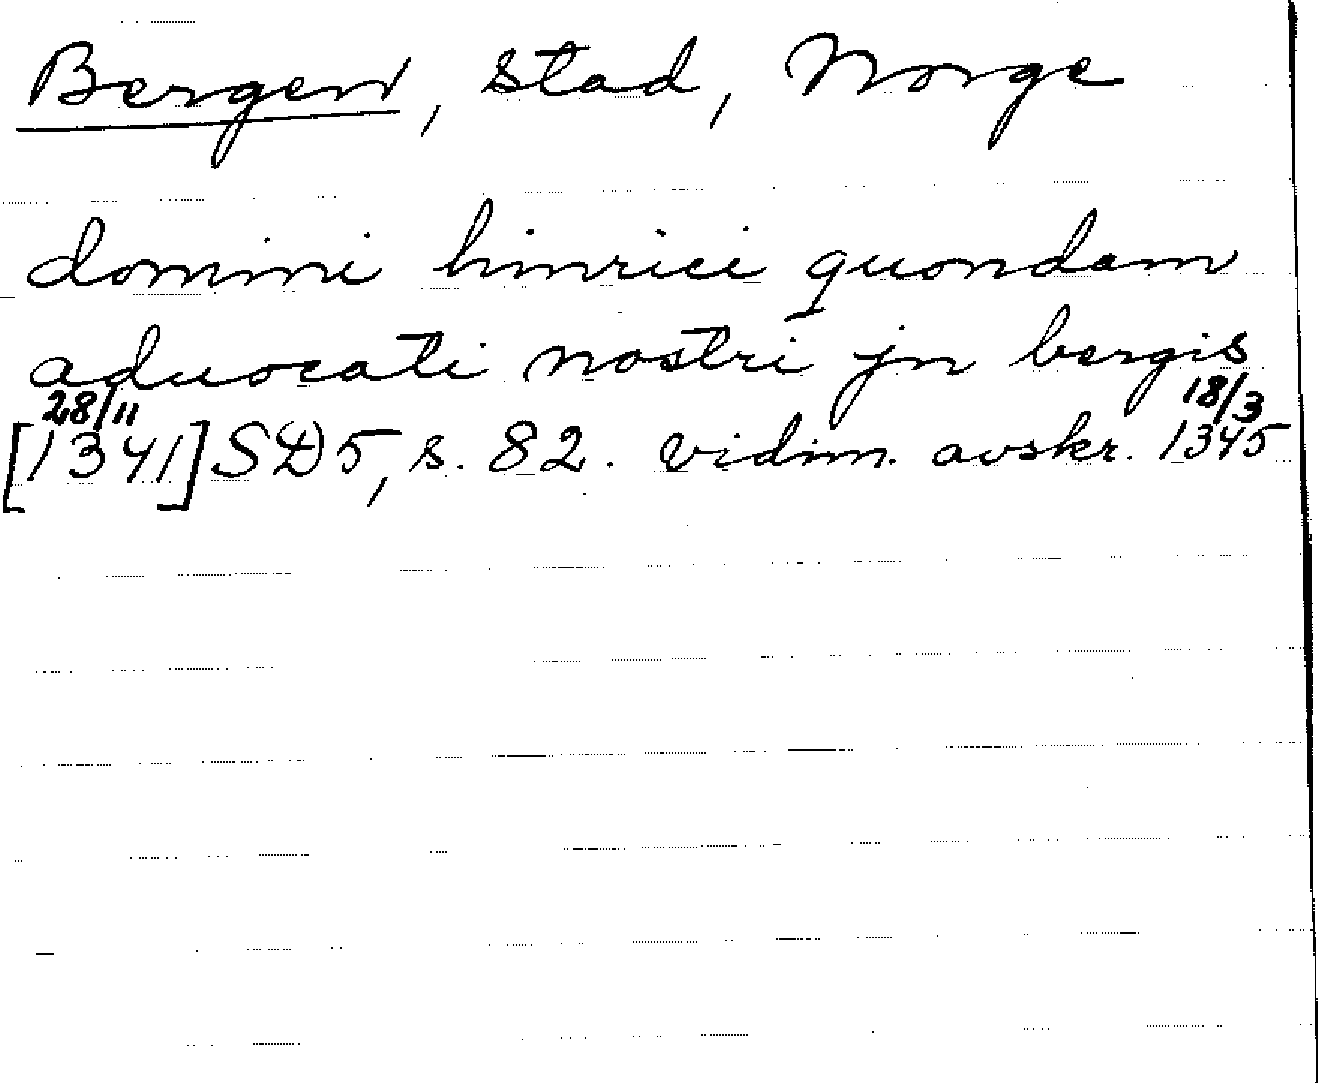 Bergen, stad, Norge
domini hinrici quondam
aduocati nostri jn bergis
28/11 18/3
[1341] SD5, s. 82. vidim. avskr. 1345